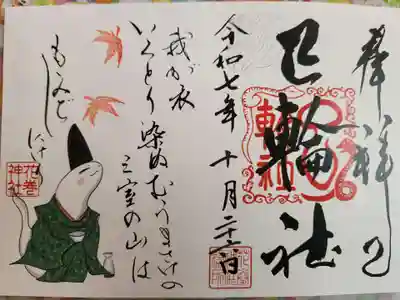 奉拝
巳輪社
令和七年十月二十六日
我が衣
いろとり染むうまさけの
三室の山は
もみぢ
しにけり
花巻
神社